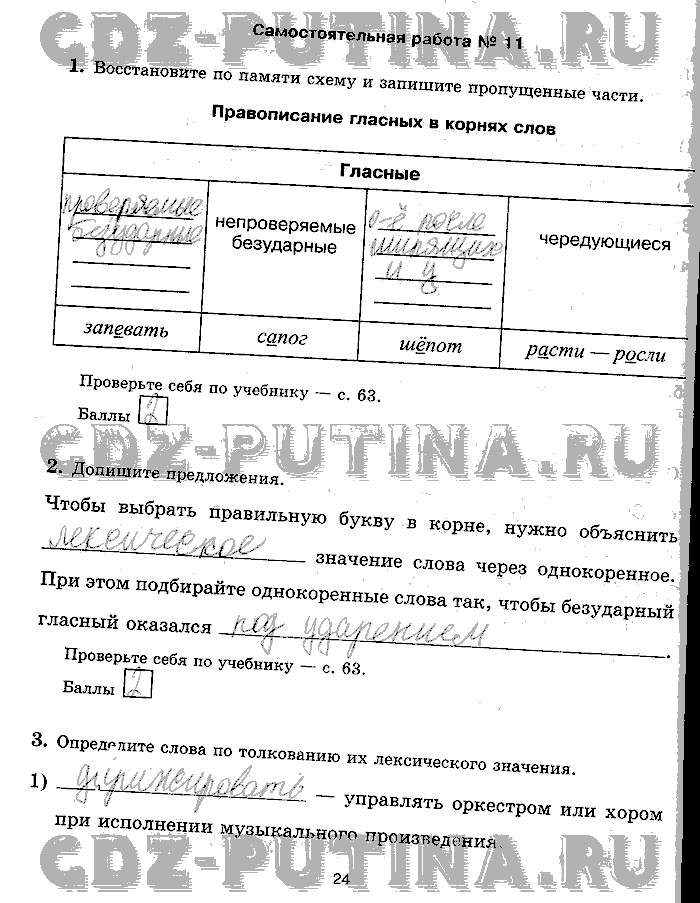 GDZ-PUTINA.RU
Самостоятельная работа № 11
1. Восстановите по памяти схему и запишите пропущенные части.
Правописание гласных в корнях слов
Гласные
проверяемые
безударные
непроверяемые
безударные
о-ё после
шипящих
и ц
чередующиеся
запевать
сапог
шёпот
расти — росли
Проверьте себя по учебнику — с. 63.
Баллы 2
GDZ-PUTINA.RU
2. Допишите предложения.
Чтобы выбрать правильную букву в корне, нужно объяснить
лексическое значение слова через однокоренное.
При этом подбирайте однокоренные слова так, чтобы безударный
гласный оказался под ударением.
Проверьте себя по учебнику — с. 63.
Баллы 2
3. Определите слова по толкованию их лексического значения.
1) дирижировать — управлять оркестром или хором
при исполнении музыкального произведения.
GDZ-PUTINA.RU
24